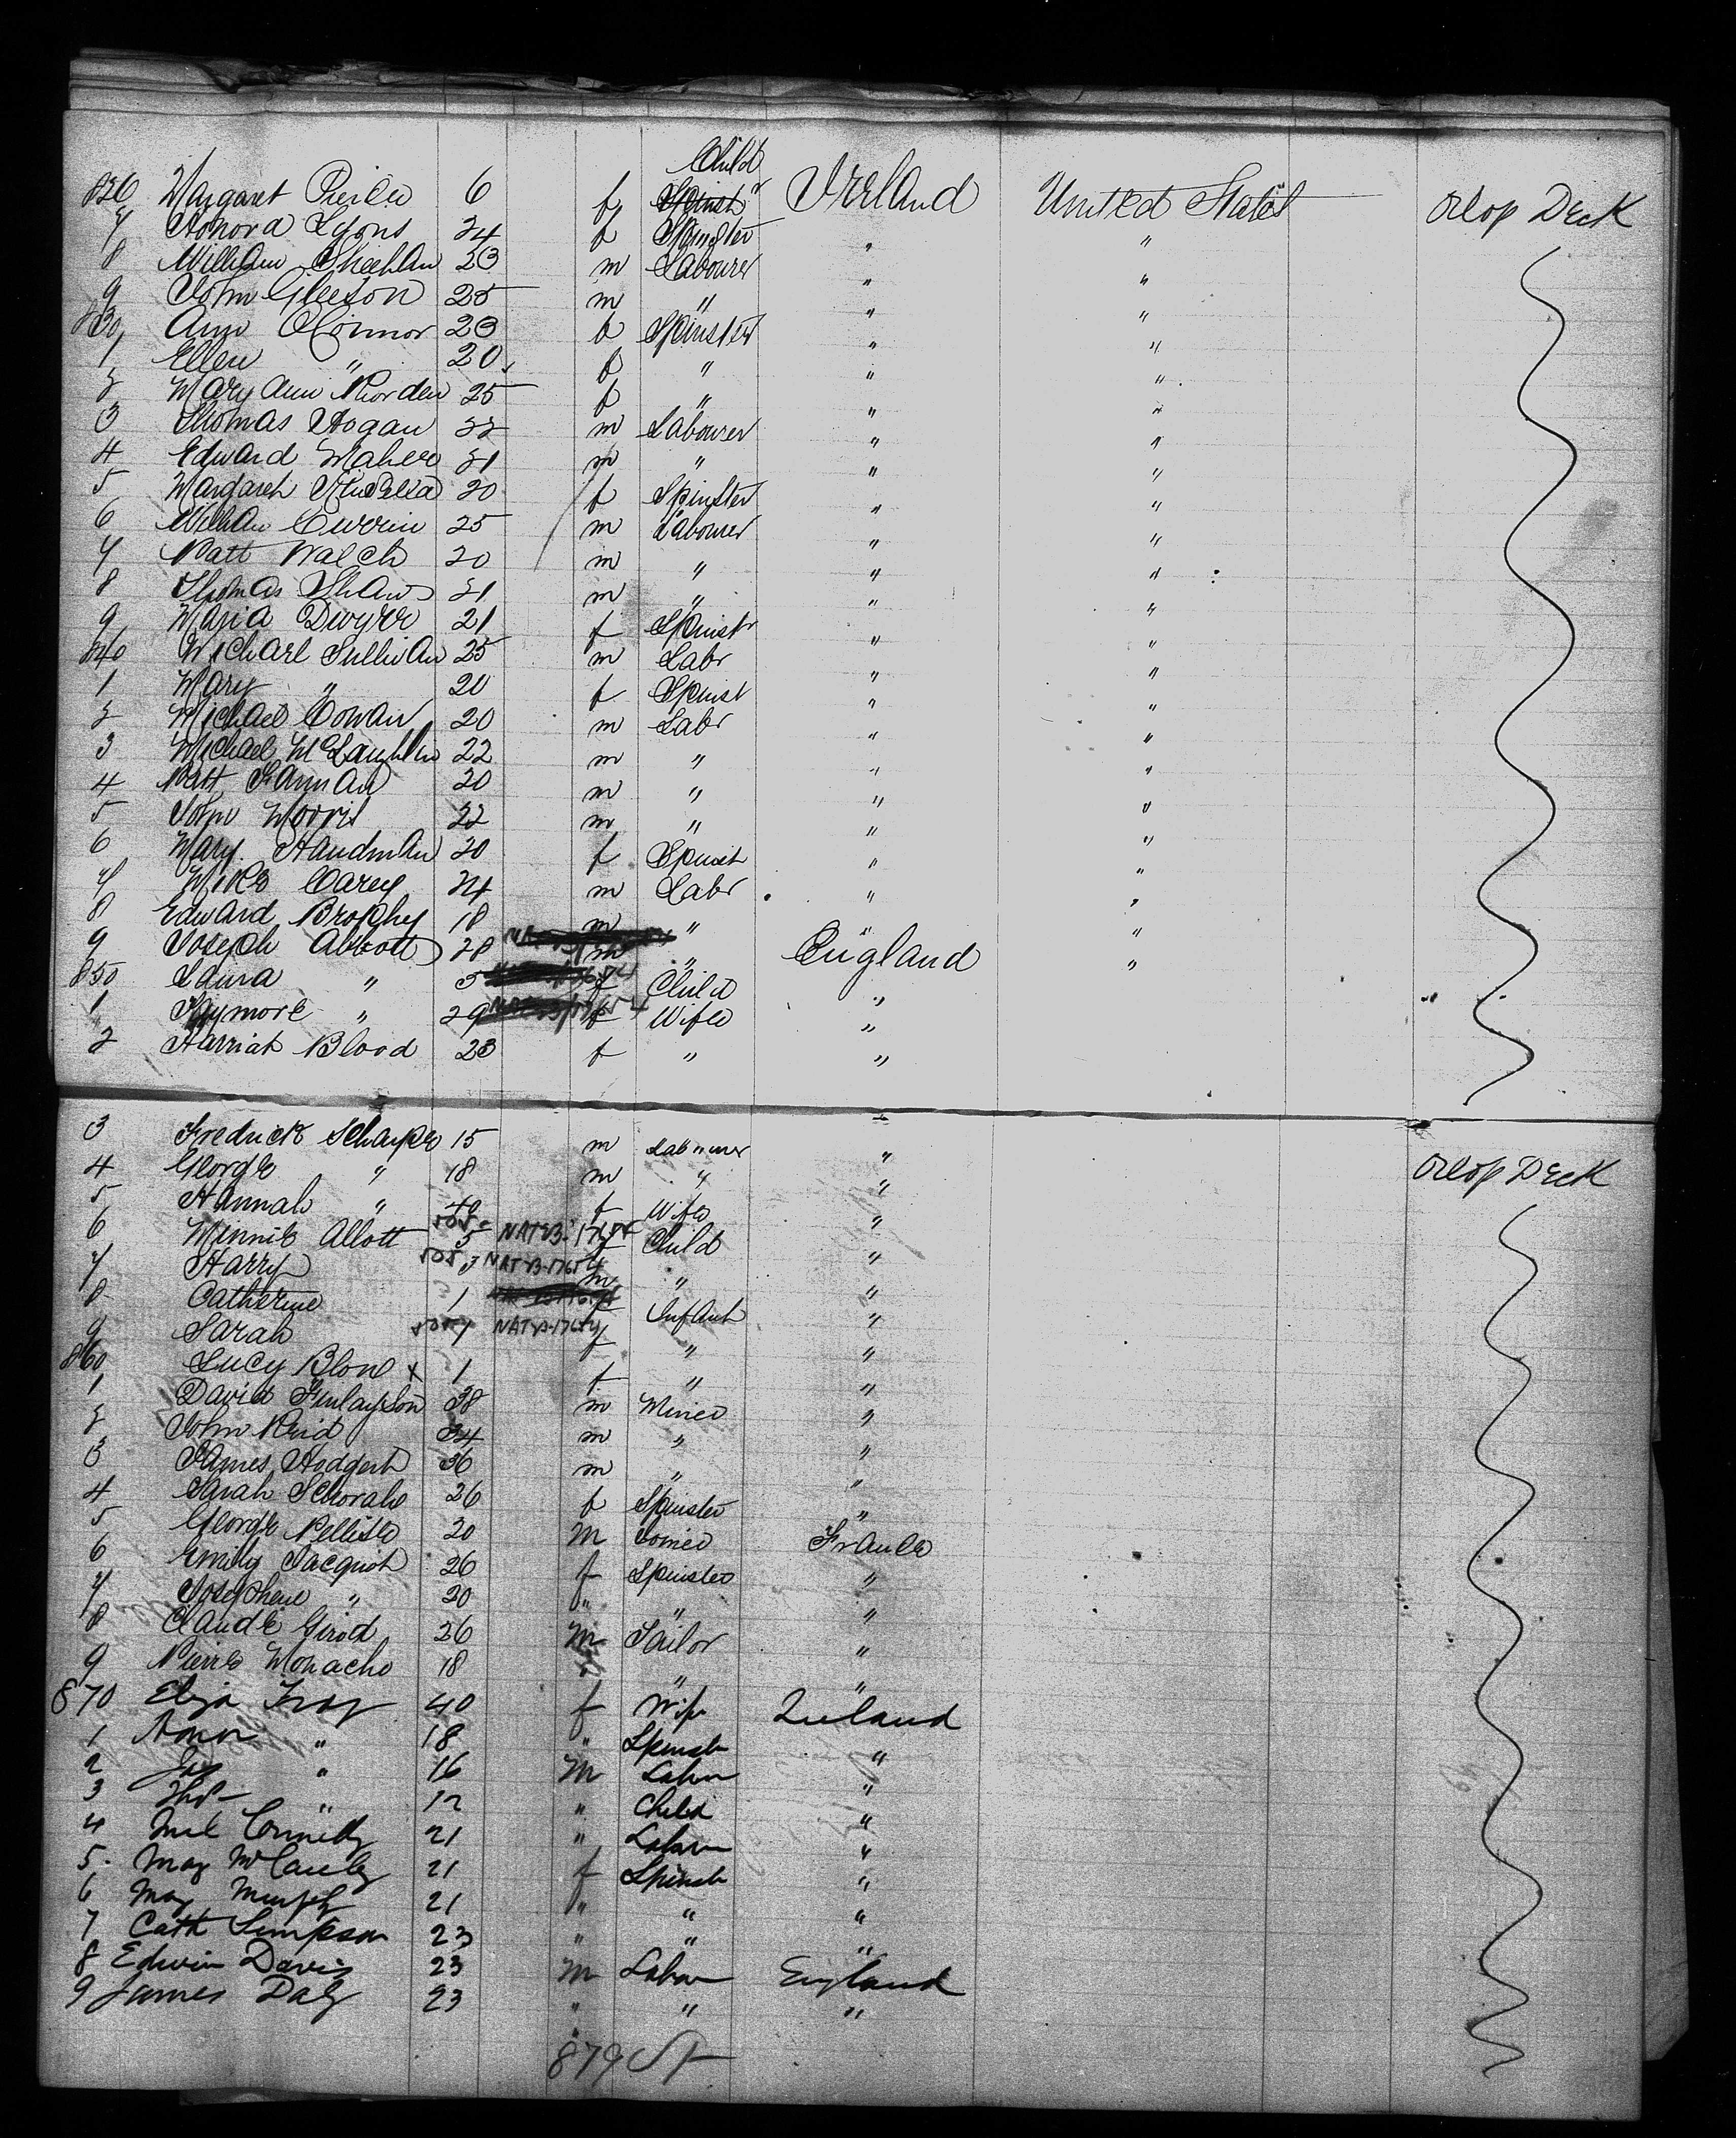 Child
826 Margaret 6 f Spinstr Ireland United States Orlop Deck
7 Honora Lyons 24 f Spinster " "
8 William Sheehan 23 m Labourer " "
9 John Gleeson 25 m " " "
830 Ann O'Connor 23 f Spinster " "
1 Ellen " 20 f " " "
2 Mary Ann Riorden 25 f " " "
3 Thomas Hogan 22 m Labourer " "
4 Edward Maher 21 m " " "
5 Margaret 20 f Spinster " "
6 William Currin 25 m Labourer " "
7 Patt Walch 20 m " " "
8 Thomas Shaw 21 m " " "
9 Maria Dwyer 21 f Spinstr " "
840 Michael Sullivan 25 m Labr " "
1 Mary " 20 f Spinst " "
2 Michael Cowan 20 m Labr " "
3 Michael McLaughlin 22 m " " "
4 Patt Hannan 20 m " " "
5 John Morris 22 m " " "
6 Mary Handman 20 f Spinst " "
7 Mike Carey 24 m Labr " "
8 Edward Brophy 18 m " " "
9 Joseph Abbott 28 m " England "
850 Laura " 5 f Child "
1 " 29 f Wife "
2 Harriat Blood 23 f " "
3 Fredrick Scharpe 15 m Labourer "
4 George " 18 m " " Orlop Deck
5 Hannah " 40 f Wife "
6 Minnie Allott 5 NAT V3-1765 f Child "
7 Harry 3 NAT-V3-1765 m " "
8 Catherine 1 f Infant "
9 Sarah 1 f " "
860 Lucy Blone x 1 f " "
1 David Finlayson 38 m Miner "
2 John Reid 34 m " "
3 James Hodgert 36 m " "
4 Sarah 26 f Spinster "
5 George 20 m Joiner France
6 Emily Jacquot 26 f Spinster "
7 Josephene " 20 " " "
8 Claude Girod 26 m Tailor "
9 Pierre Monache 18 " " "
870 Eliza 40 f Wife Ireland
1 " 18 " Spinst "
2 Jas " 16 m Labour "
3 Thos " 12 " Child "
4 Connelly 21 " Labour "
5 May McCauley 21 f Spinst "
6 May Murphy 21 " " "
7 Cath Simpson 23 " " "
8 Edwin Davis 23 m Labour England
9 James Daly 23 " " "
879